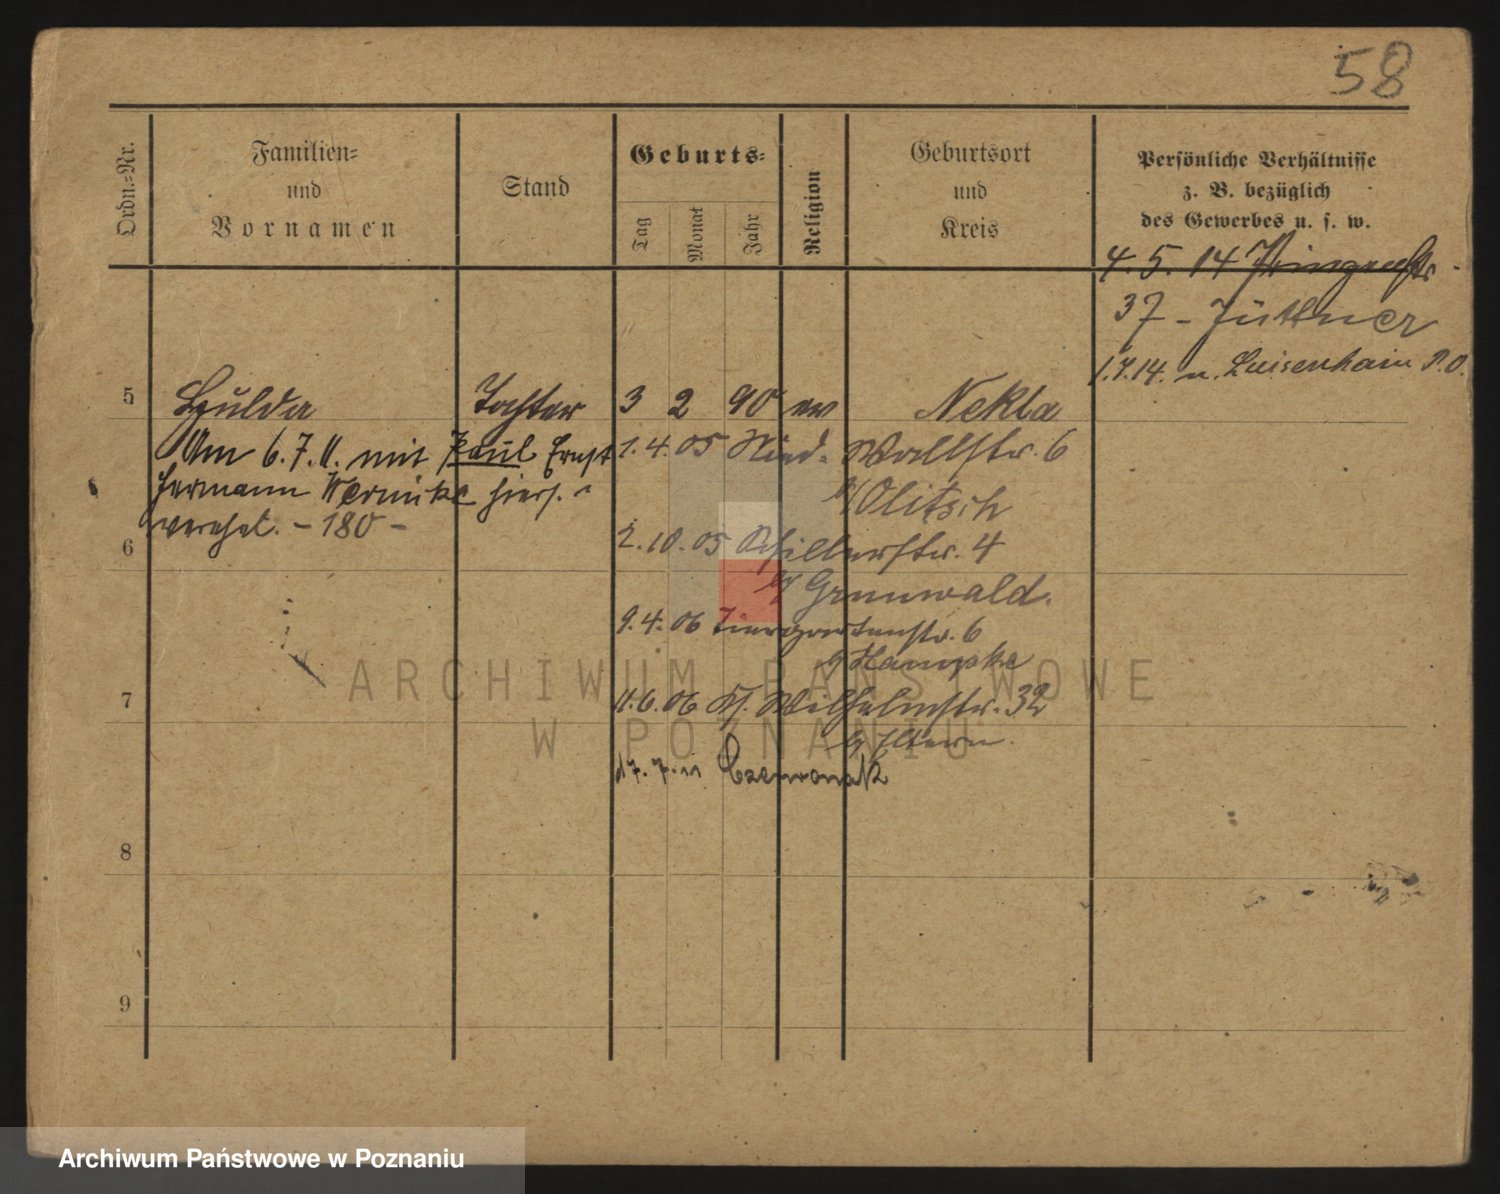 58
Ordn.-Nr.
Familien-
und
Vornamen
Stand
Geburts-
Tag
Monat
Jahr
Religion
Geburtsort
und
Kreis
Persönliche Verhältnisse
z. B. bezüglich
des Gewerbes u. s. w.
4. 5. 14
37 - Jüttner
1.7.14. n. Luisenhain P.O.
5 Hulda Tochter 3 2 90 ev Nekla
Am 6.7.11. mit Paul Ernst 1.4.05 Wallstr. 6
Hermann Wernicke hiers. b/ Olitsch
verehel. - 180 -
6 2.10.05 Schillerstr. 4
b/ Grunwald.
9.4.06 Tiergartenstr. 6
b/ Hampke
7 11.6.06 Wilhelmstr. 32
b/ Eltern.
7.11 Czerwonak
8
9
ARCHIWUM PAŃSTWOWE
W POZNANIU
Archiwum Państwowe w Poznaniu